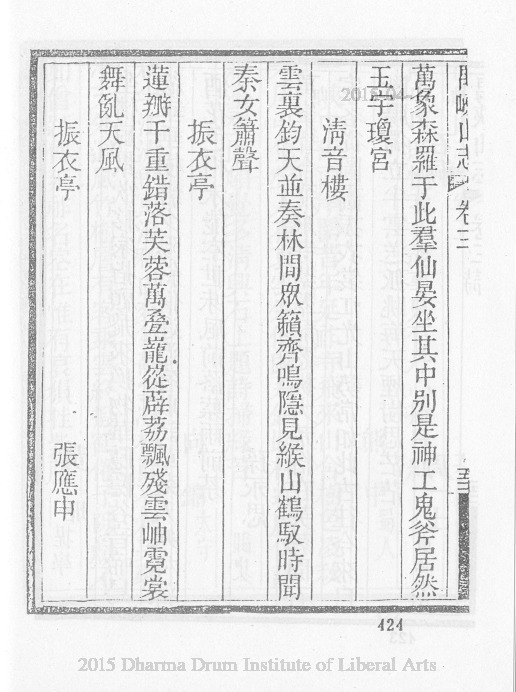 山志 卷三
萬象森羅于此羣仙晏坐其中別是神工鬼斧居然
玉宇瓊宮
清音樓
雲裏鈞天並奏林間眾籟齊鳴隱見緱山鶴馭時聞
秦女簫聲
振衣亭
蓮瓣千重錯落芙蓉萬疊巃嵸薜荔飄殘雲岫霓裳
舞亂天風
振衣亭 張應申
424
2015 Dharma Drum Institute of Liberal Arts